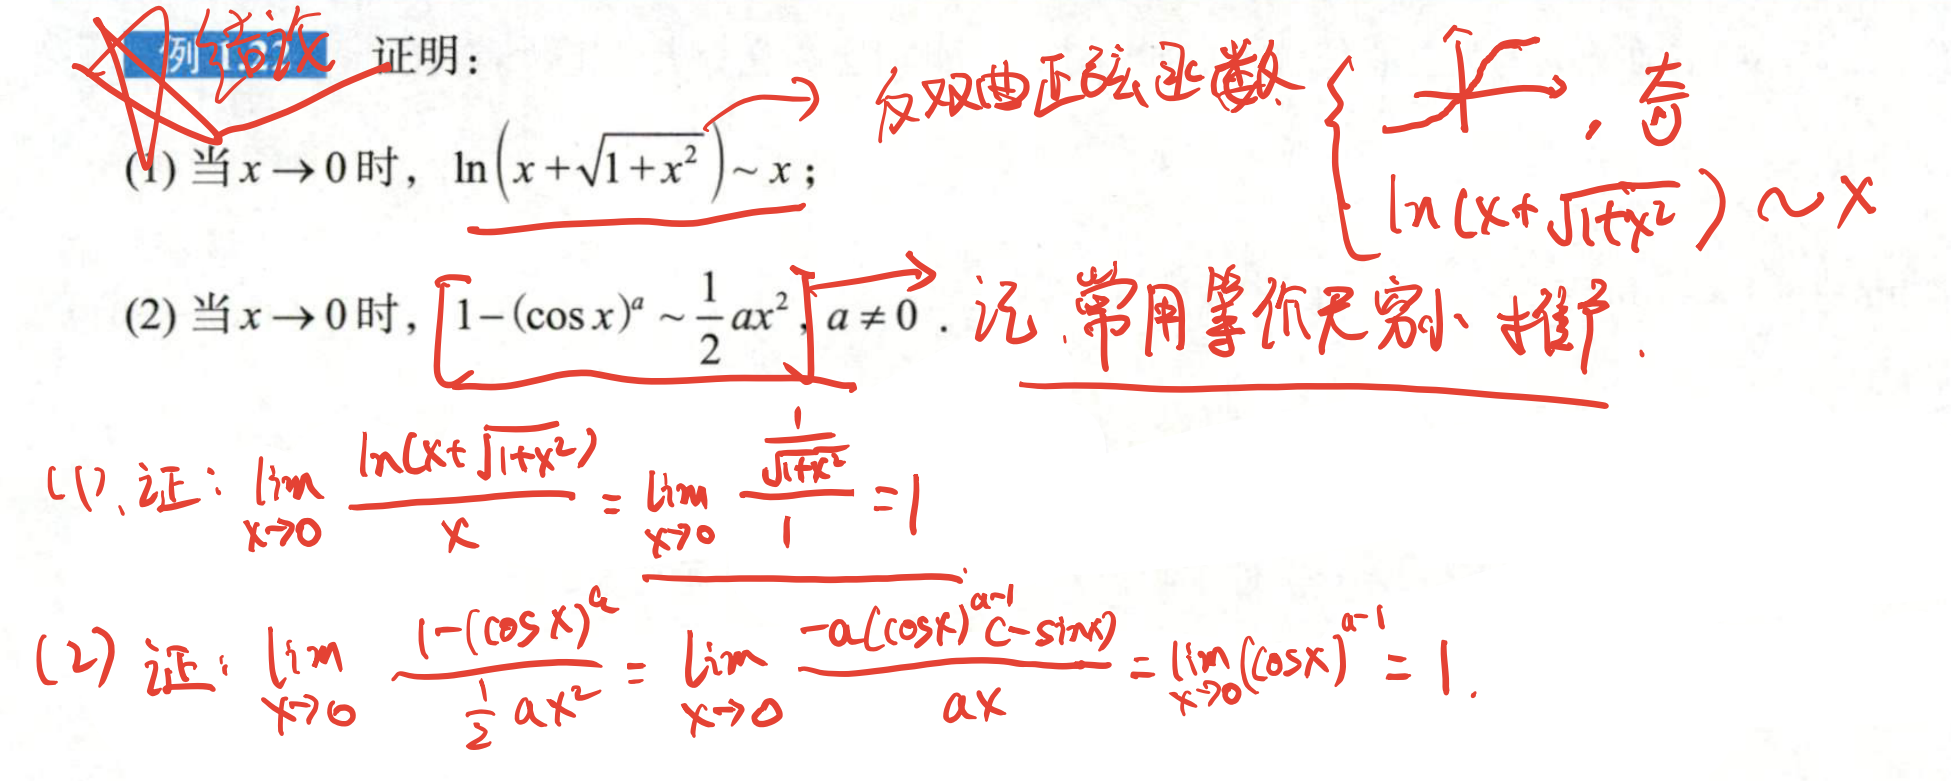 例1.22 证明：
反双曲正弦函数 , 奇
(1) 当 x → 0 时， ln(x + √(1 + x²)) ~ x；
ln(x+√(1+x²)) ~ x
(2) 当 x → 0 时， 1 − (cos x)^a ~ 1/2 ax², a ≠ 0． 记. 常用等价无穷小 推广.
(1). 证: lim_{x→0} ln(x+√(1+x²)) / x = lim_{x→0} (1/√(1+x²)) / 1 = 1
(2) 证: lim_{x→0} (1-(cosx)^a) / (1/2 ax²) = lim_{x→0} -a(cosx)^{a-1}(-sinx) / ax = lim_{x→0} (cosx)^{a-1} = 1.